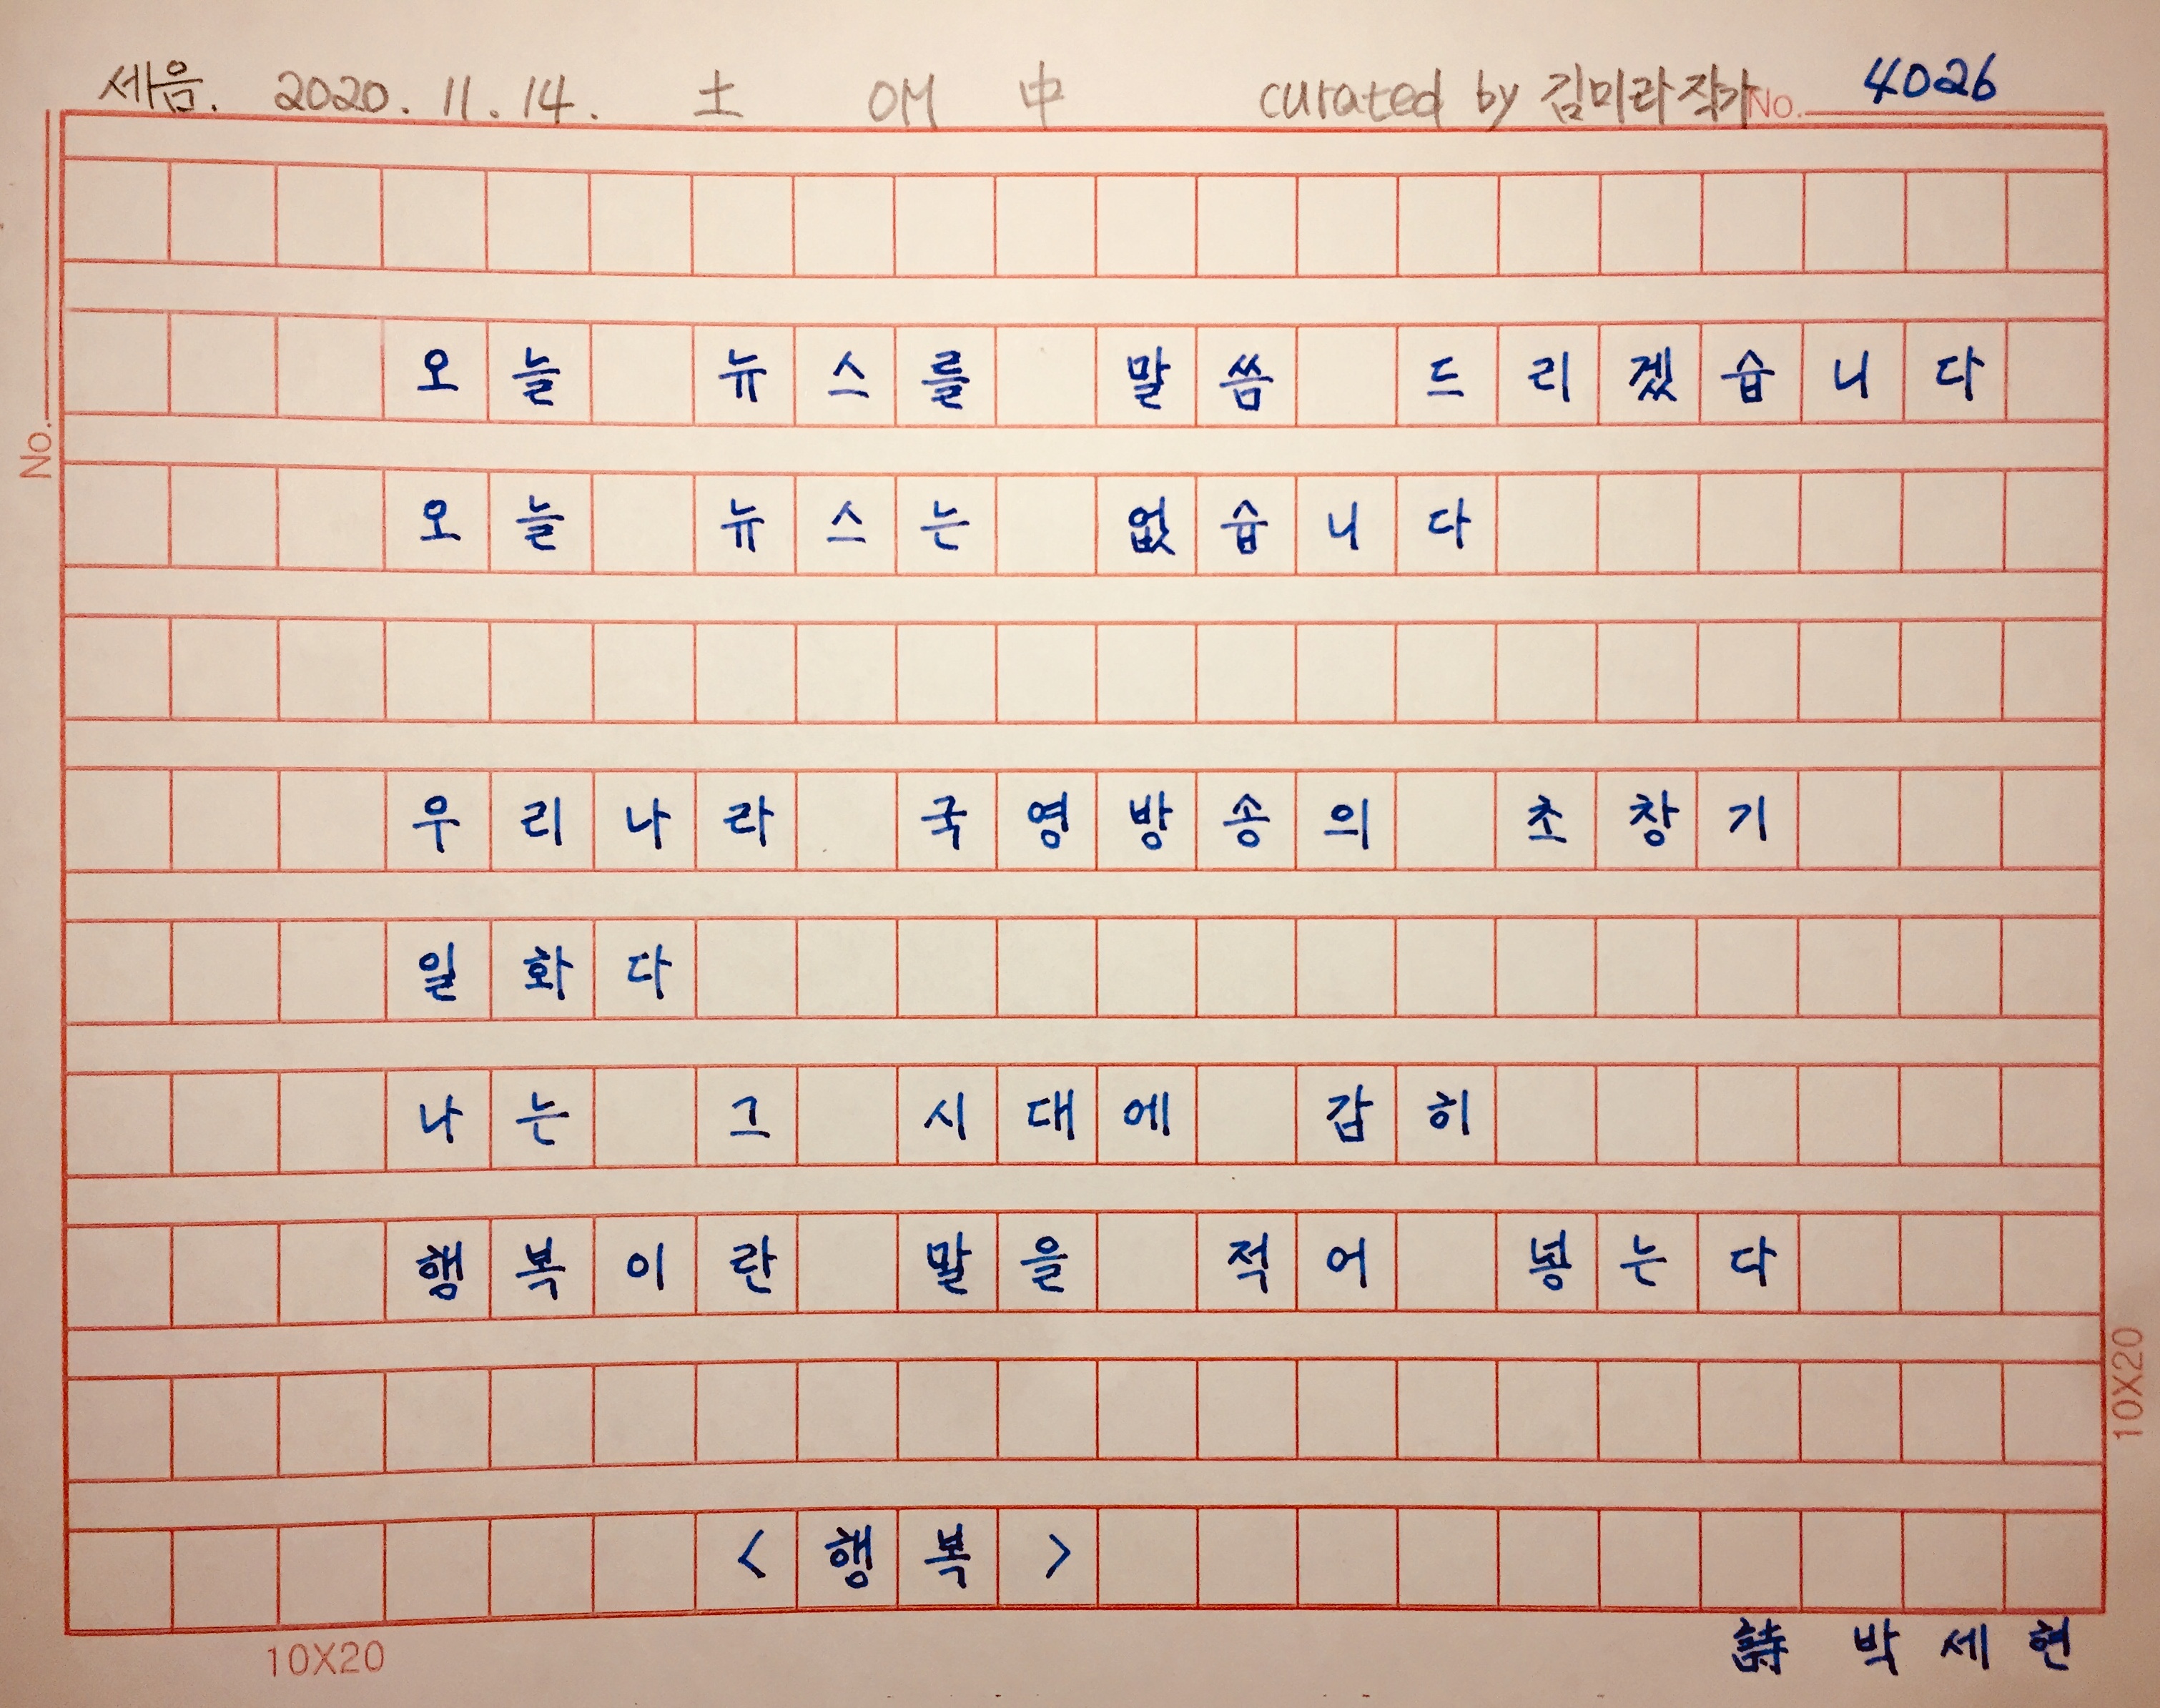 세음. 2020. 11. 14. 土 OM 中 curated by 김미라 작가 No. 4026
오늘 뉴스를 말씀 드리겠습니다
No.
오늘 뉴스는 없습니다
우리나라 국영방송의 초창기
일화다
나는 그 시대에 감히
행복이란 말을 적어 넣는다
10X20
<행복>
詩 박세현
10X20